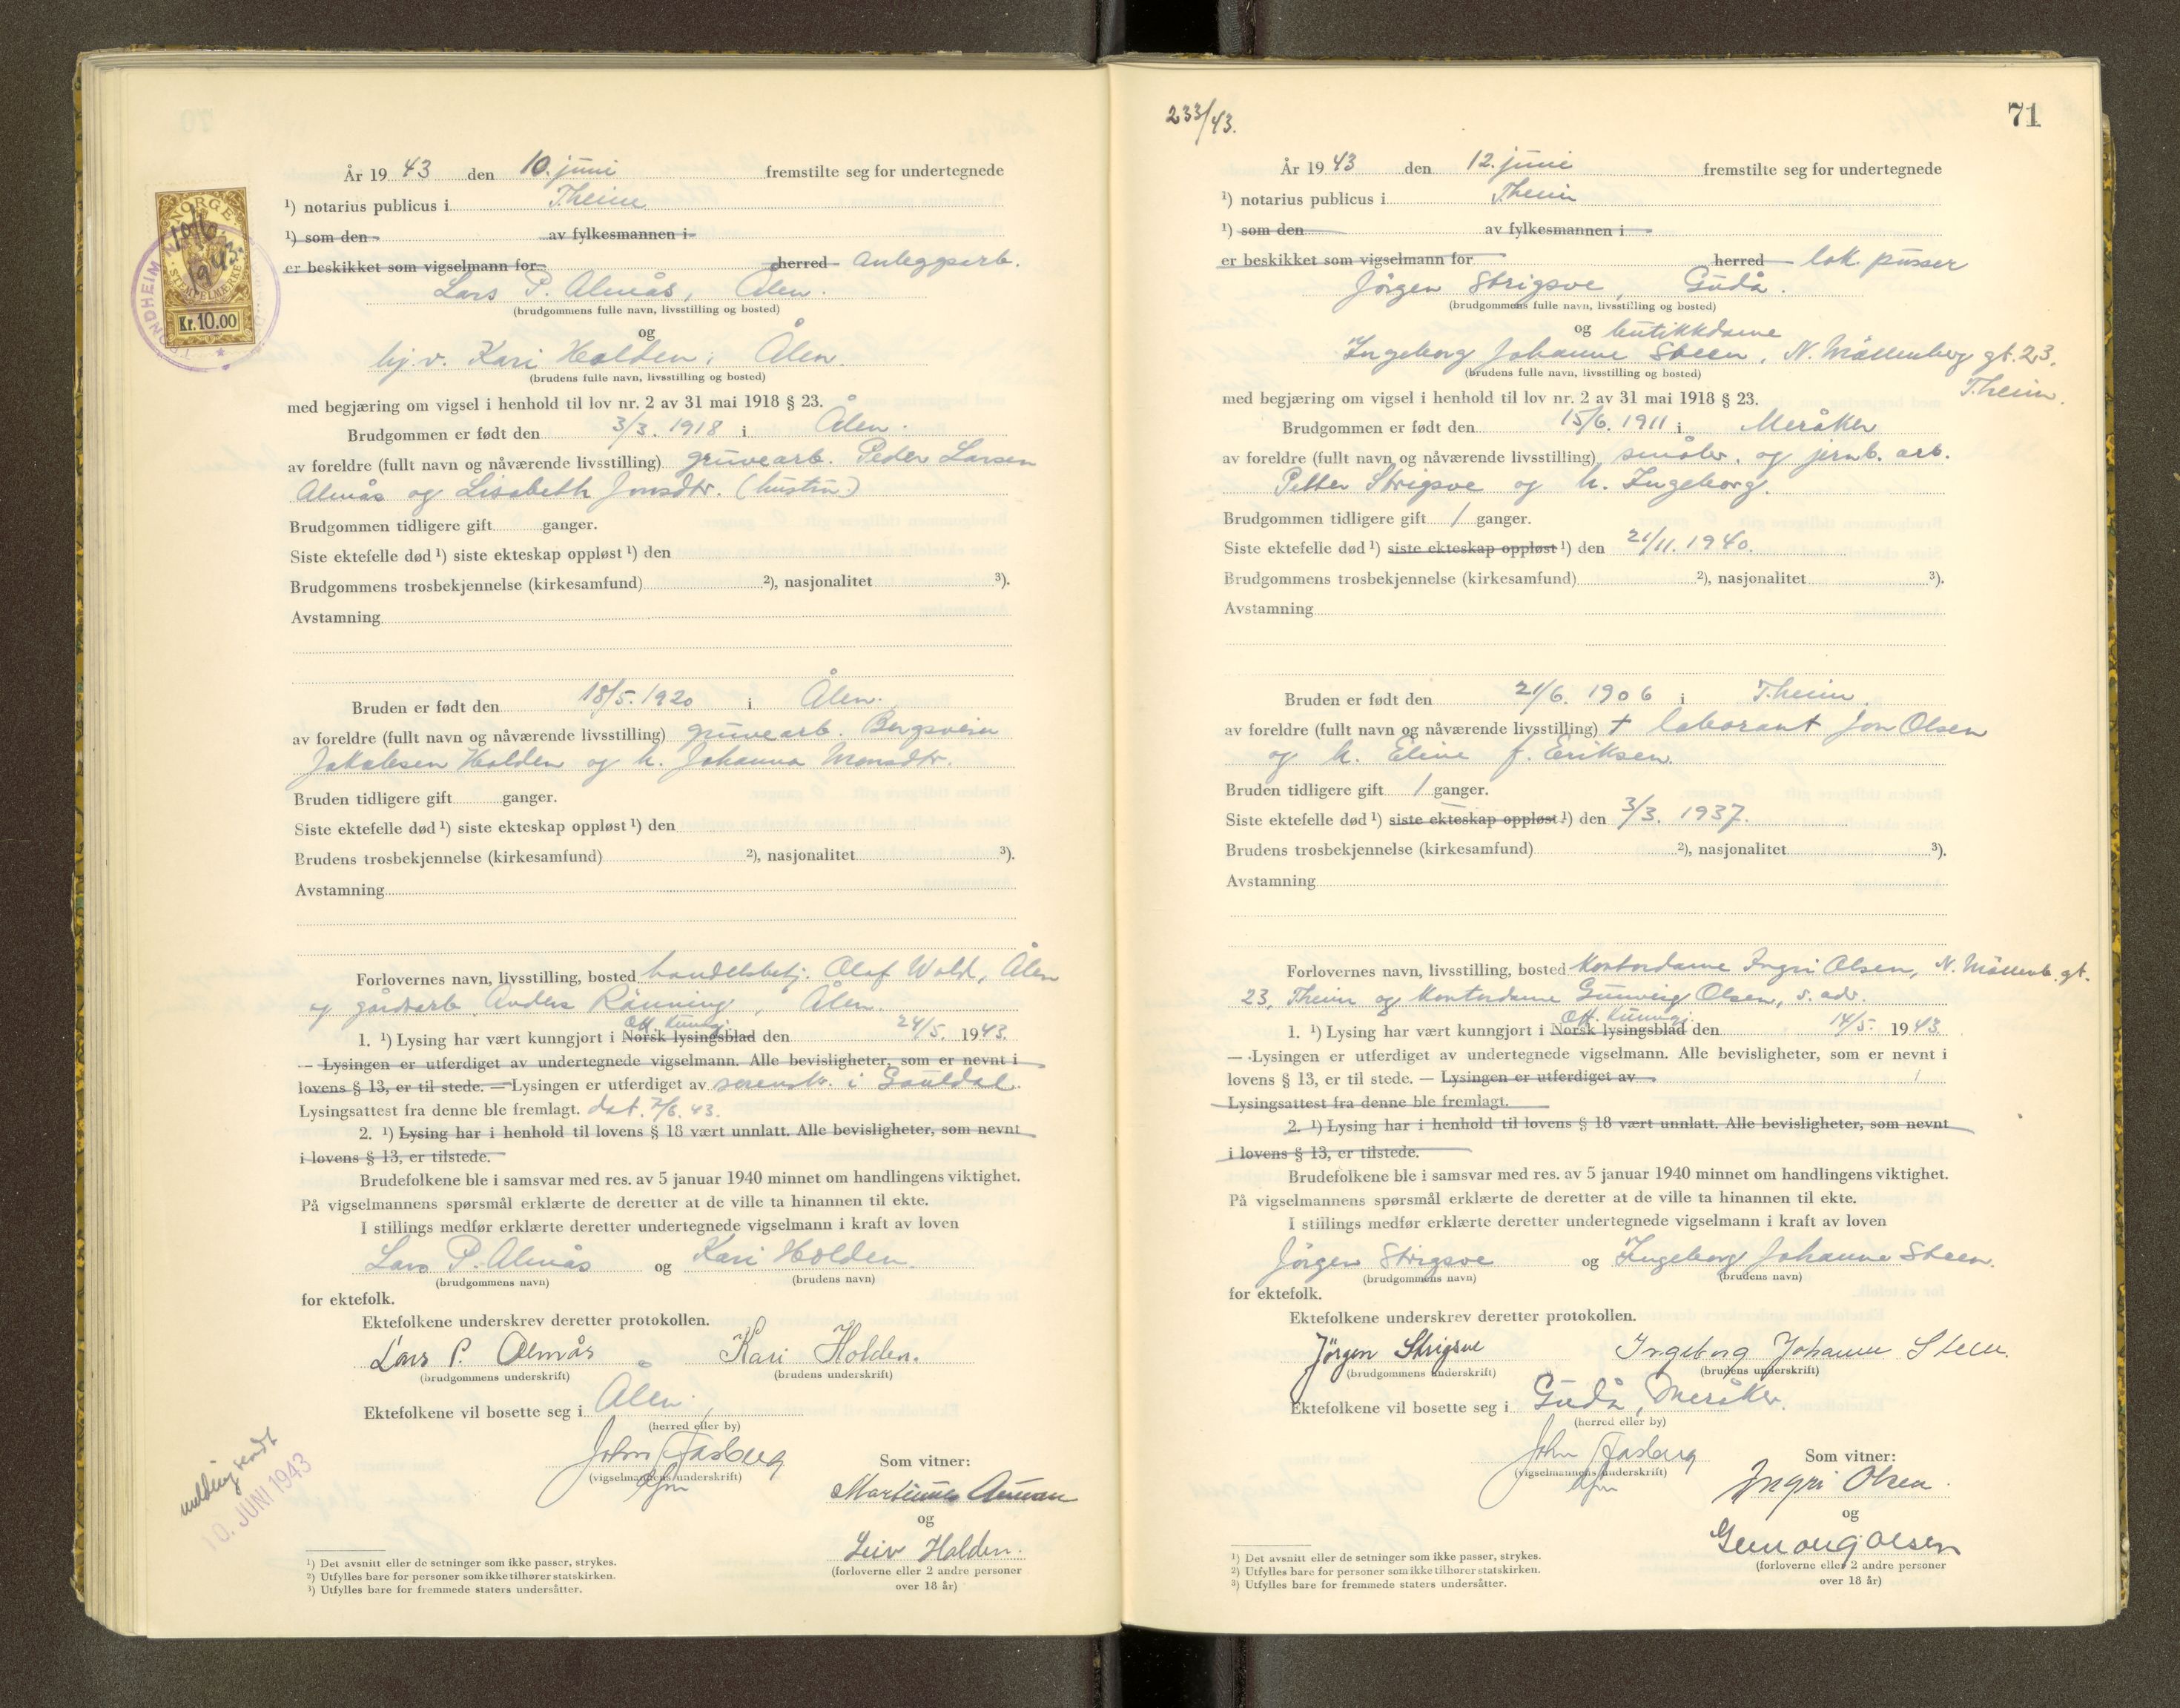 År 19 43 den 10. juni fremstilte seg for undertegnede
¹) notarius publicus i T.heim
¹) som den av fylkesmannen i
er beskikket som vigselmann for herred anleggsarb.
Lars P. Almås, Ålen.
(brudgommens fulle navn, livsstilling og bosted)
og
hj.v. Kari Holden, Ålen.
(brudens fulle navn, livsstilling og bosted)
med begjæring om vigsel i henhold til lov nr. 2 av 31 mai 1918 § 23.
Brudgommen er født den 3/3. 1918 i Ålen.
av foreldre (fullt navn og nåværende livsstilling) gruvearb. Peder Larsen
Almås og Lisabeth Jonsdtr. (hustru)
Brudgommen tidligere gift ganger.
Siste ektefelle død ¹) siste ekteskap oppløst ¹) den
Brudgommens trosbekjennelse (kirkesamfund) ²), nasjonalitet ³).
Avstamning
Bruden er født den 18/5. 1920 i Ålen.
av foreldre (fullt navn og nåværende livsstilling) gruvearb. Bergsvein
Jakobsen Holden og h. Johanna Monsdtr.
Bruden tidligere gift ganger.
Siste ektefelle død ¹) siste ekteskap oppløst ¹) den
Brudens trosbekjennelse (kirkesamfund) ²), nasjonalitet ³).
Avstamning
Forlovernes navn, livsstilling, bosted handelsbetj. Olaf Wold, Ålen
og gårdsarb. Anders Rönning, Ålen.
Off. kunngj.
1. ¹) Lysing har vært kunngjort i Norsk lysingsblad den 24/5. 1943.
— Lysingen er utferdiget av undertegnede vigselmann. Alle bevisligheter, som er nevnt i
lovens § 13, er til stede. — Lysingen er utferdiget av sorenskr. i Gauldal.
Lysingsattest fra denne ble fremlagt. dat. 7/6. 43.
2. ¹) Lysing har i henhold til lovens § 18 vært unnlatt. Alle bevisligheter, som nevnt
i lovens § 13, er tilstede.
Brudefolkene ble i samsvar med res. av 5 januar 1940 minnet om handlingens viktighet.
På vigselmannens spørsmål erklærte de deretter at de ville ta hinannen til ekte.
I stillings medfør erklærte deretter undertegnede vigselmann i kraft av loven
Lars P. Almås og Kari Holden.
(brudgommens navn) (brudens navn)
for ektefolk.
Ektefolkene underskrev deretter protokollen.
Lars P. Almås Kari Holden.
(brudgommens underskrift) (brudens underskrift)
Ektefolkene vil bosette seg i Ålen,
(herred eller by)
John Aasberg
(vigselmannens underskrift)
Som vitner:
Martinus
og
Leiv Holden.
(forloverne eller 2 andre personer
over 18 år)
¹) Det avsnitt eller de setninger som ikke passer, strykes.
²) Utfylles bare for personer som ikke tilhører statskirken.
³) Utfylles bare for fremmede staters undersåtter.
NORGE
STEMPELMERKE
Kr. 10.00
10/6 1943.
TRONDHEIM
melding sendt
10. JUNI 1943
233/43.
71
År 19 43 den 12. juni fremstilte seg for undertegnede
¹) notarius publicus i T.heim
¹) som den av fylkesmannen i
er beskikket som vigselmann for herred lok. pusser
Jörgen Strigsve, Gudå.
(brudgommens fulle navn, livsstilling og bosted)
og butikkdame
Ingeborg Johanne Steen, N. Möllenberg gt. 23,
T.heim.
(brudens fulle navn, livsstilling og bosted)
med begjæring om vigsel i henhold til lov nr. 2 av 31 mai 1918 § 23.
Brudgommen er født den 15/6. 1911 i Meråker
av foreldre (fullt navn og nåværende livsstilling) småbr. og jernb. arb.
Petter Strigsve og h. Ingeborg.
Brudgommen tidligere gift 1 ganger.
Siste ektefelle død ¹) siste ekteskap oppløst ¹) den 21/11. 1940.
Brudgommens trosbekjennelse (kirkesamfund) ²), nasjonalitet ³).
Avstamning
Bruden er født den 21/6. 1906 i T.heim.
av foreldre (fullt navn og nåværende livsstilling) † laborant Jon Olsen
og h. Eline f. Eriksen.
Bruden tidligere gift 1 ganger.
Siste ektefelle død ¹) siste ekteskap oppløst ¹) den 3/3. 1937.
Brudens trosbekjennelse (kirkesamfund) ²), nasjonalitet ³).
Avstamning
Forlovernes navn, livsstilling, bosted kontordame Ingri Olsen, N. Möllenb. gt.
23, T.heim og kontordame Gunveig Olsen, s. adr.
Off. kunngj.
1. ¹) Lysing har vært kunngjort i Norsk lysingsblad den 14/5. 1943
— Lysingen er utferdiget av undertegnede vigselmann. Alle bevisligheter, som er nevnt i
lovens § 13, er til stede. — Lysingen er utferdiget av
Lysingsattest fra denne ble fremlagt.
2. ¹) Lysing har i henhold til lovens § 18 vært unnlatt. Alle bevisligheter, som nevnt
i lovens § 13, er tilstede.
Brudefolkene ble i samsvar med res. av 5 januar 1940 minnet om handlingens viktighet.
På vigselmannens spørsmål erklærte de deretter at de ville ta hinannen til ekte.
I stillings medfør erklærte deretter undertegnede vigselmann i kraft av loven
Jörgen Strigsve og Ingeborg Johanne Steen.
(brudgommens navn) (brudens navn)
for ektefolk.
Ektefolkene underskrev deretter protokollen.
Jörgen Strigsve Ingeborg Johanne Steen.
(brudgommens underskrift) (brudens underskrift)
Ektefolkene vil bosette seg i Gudå, Meråker.
(herred eller by)
John Aasberg
(vigselmannens underskrift)
Som vitner:
Ingri Olsen.
og
Gunveig Olsen
(forloverne eller 2 andre personer
over 18 år)
¹) Det avsnitt eller de setninger som ikke passer, strykes.
²) Utfylles bare for personer som ikke tilhører statskirken.
³) Utfylles bare for fremmede staters undersåtter.